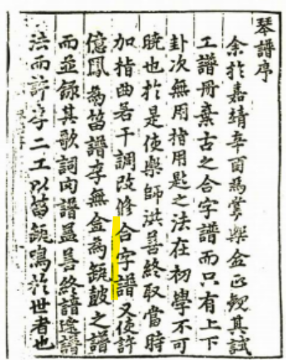 琴譜序
余於嘉靖辛酉爲掌樂僉正觀其試
工譜冊弃古之合字譜而只有上下
卦次無用指用匙之法在初學不可
曉也於是使樂師洪善終取當時
加指曲若干調改修合字譜又使許
億鳳爲笛譜李無金爲杖鼓之譜
而並錄其歌詞肉譜盖善終諳譜
法而許李二工以笛鼓鳴於世者也